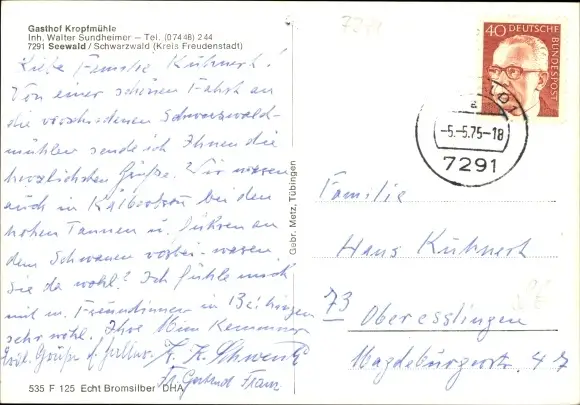 Gasthof Kropfmühle
Inh. Walter Sundheimer – Tel. (07448) 244
7291 Seewald / Schwarzwald (Kreis Freudenstadt)
Liebe Familie Kühnert!
Von einer schönen Fahrt an
die verschiedenen Schwarzwald-
mühlen sende ich Ihnen die
herzlichsten Grüße. Wir waren
auch in bei den
hohen Tannen u. führen an
dem Schwanen vorbei – waren
Sie da wohl? Ich fühle mich
mit m. Freundinnen in
sehr wohl. Ihre
Grüße
Fr. K. Schwenk
Fr. Gertrud Franz
535 F 125 Echt Bromsilber DHA
Gebr. Metz, Tübingen
40 DEUTSCHE
BUNDESPOST
-5.-5.75-18
7291
Familie
Hans Kühnert
73 Oberesslingen
Magdeburgerstr. 47